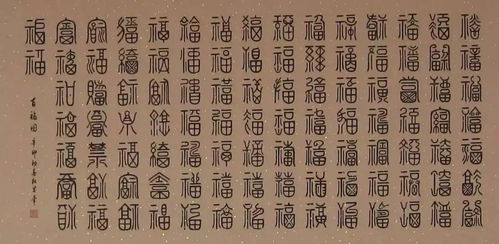 福福福福福福福
福福福福福福福
福福福福福福福
福福福福福福福
福福福福福福福
福福福福福福福
福福福福福福福
福福福福福福福
福福福福福福福
福福福福福福福
福福福福福福福
福福福福福福福
福福福福福福福
福福福福福福福
福福
百福图 辛卯